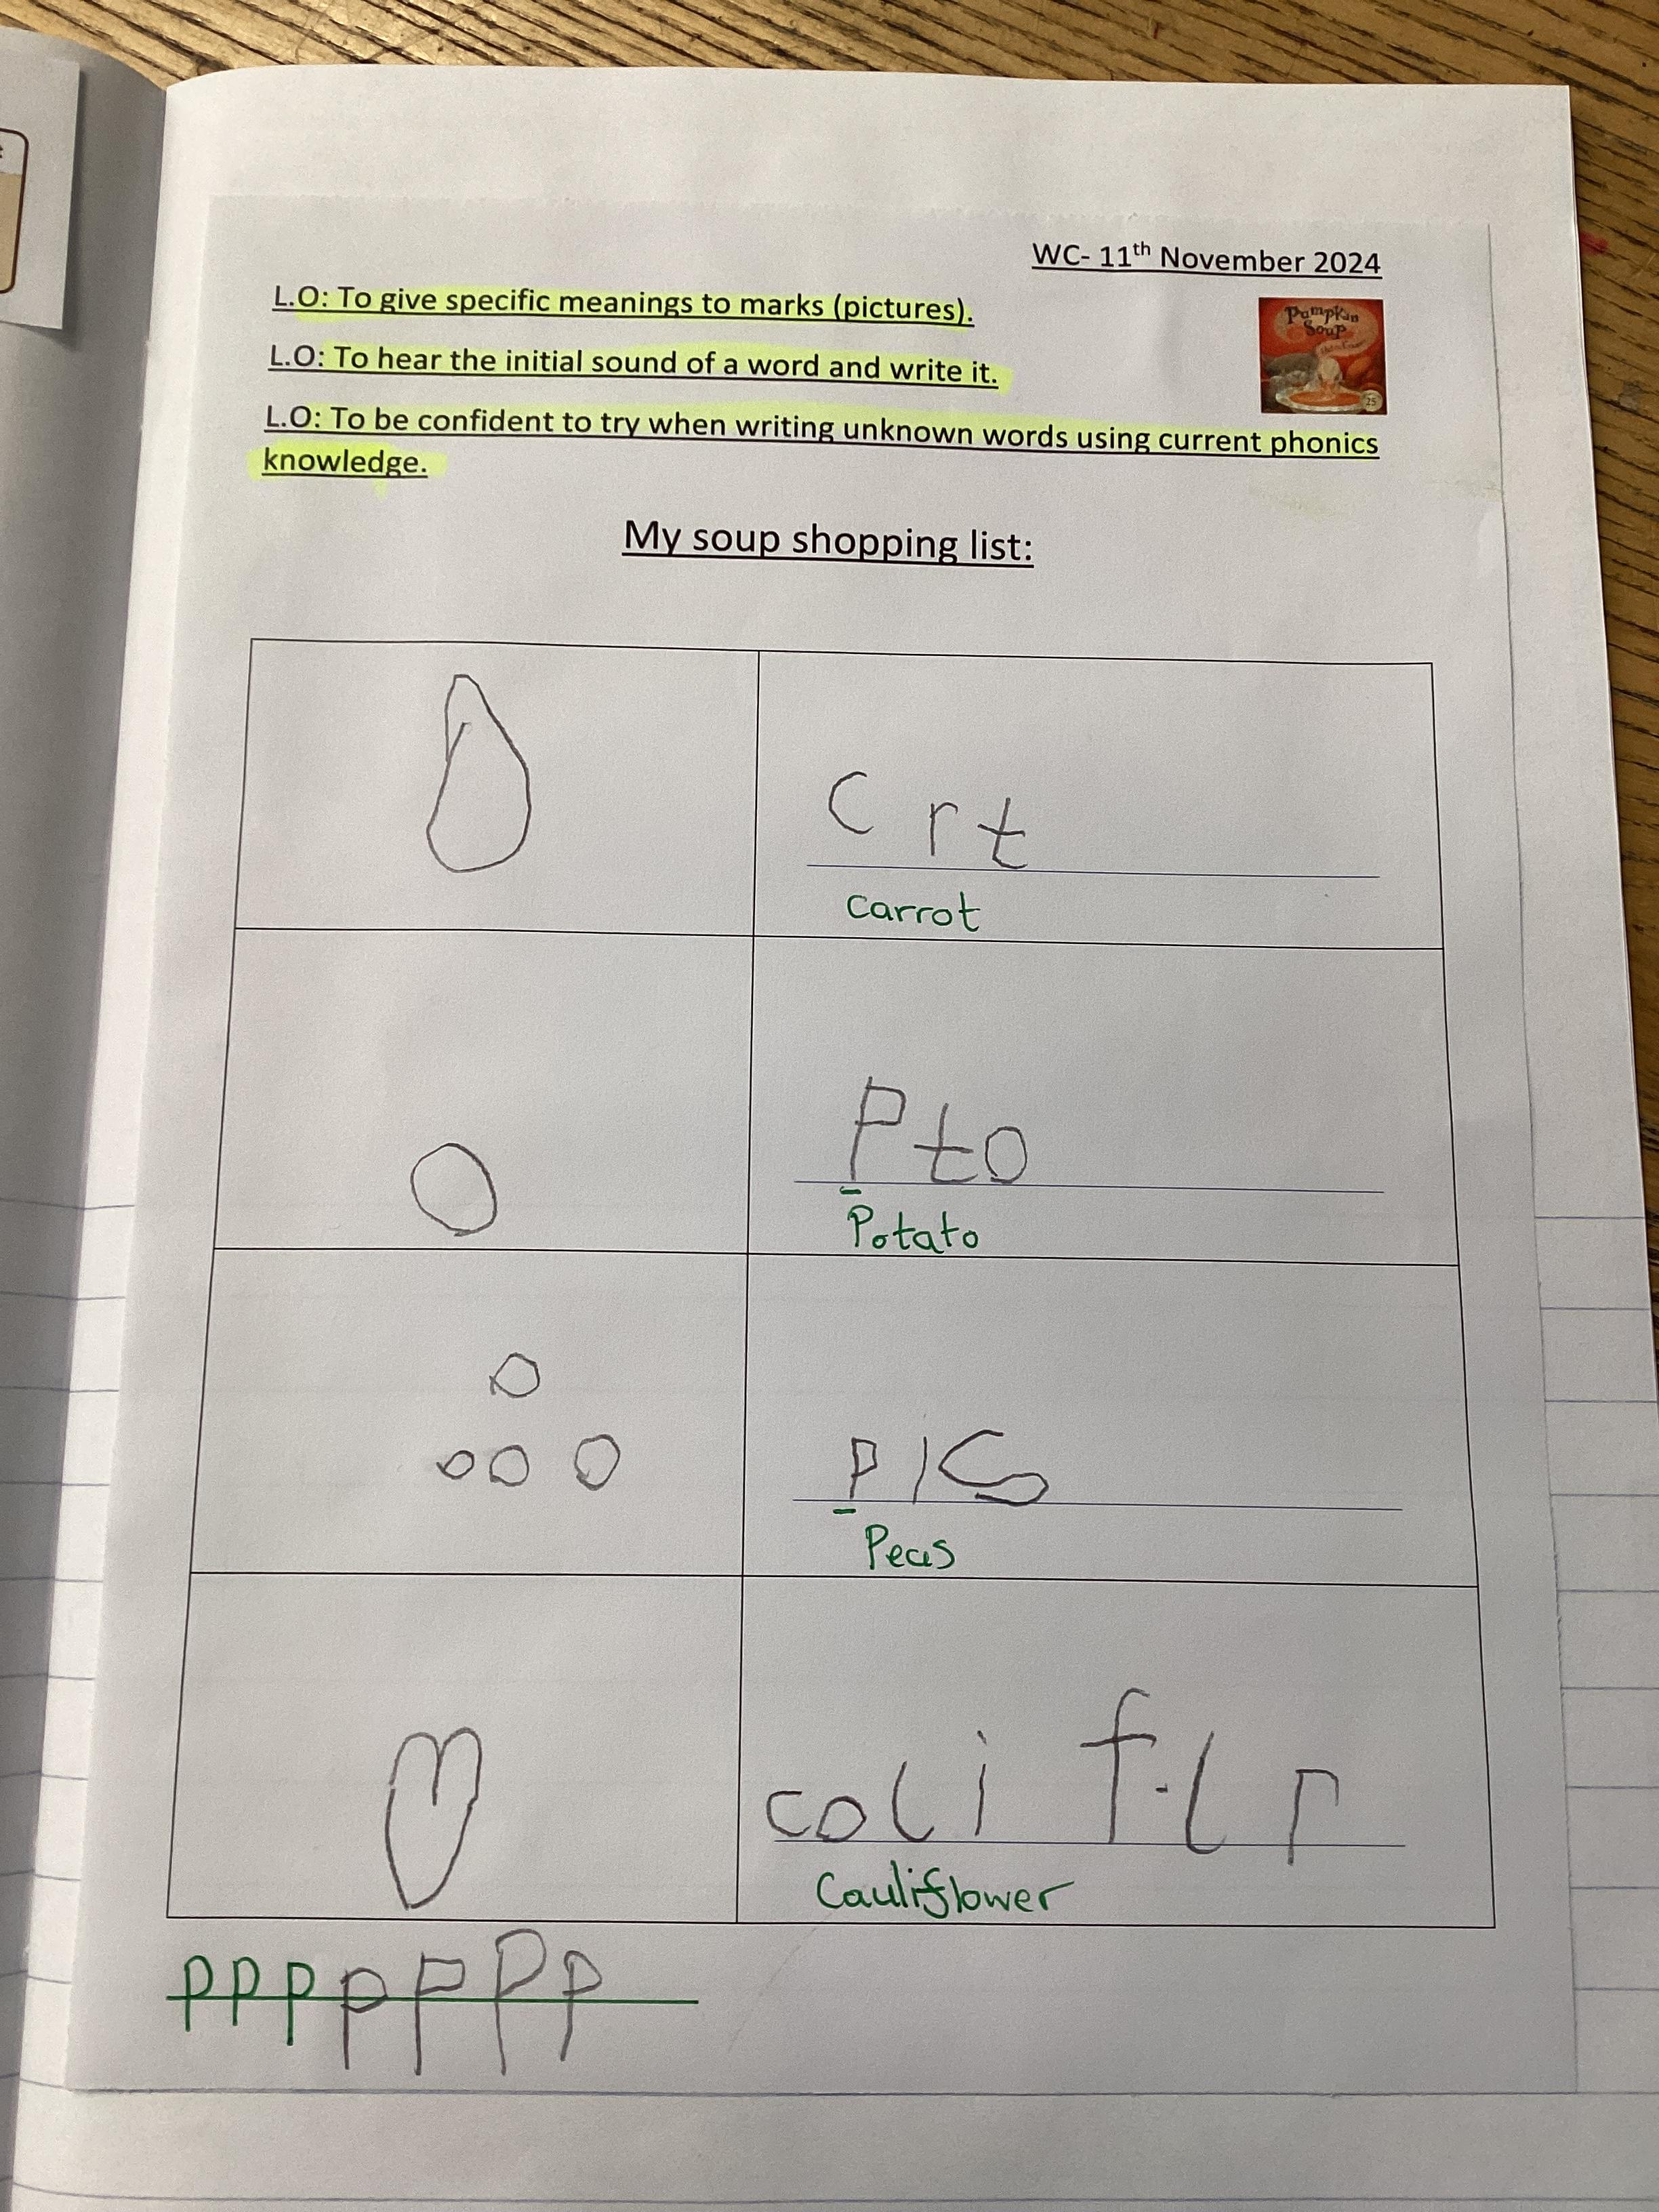 WC- 11th November 2024
L.O: To give specific meanings to marks (pictures).
Pumpkin
Soup
L.O: To hear the initial sound of a word and write it.
25
L.O: To be confident to try when writing unknown words using current phonics
knowledge.
My soup shopping list:
Crt
Carrot
Pto
Potato
PIS
Peas
coli flr
Cauliflower
p p p p p p p